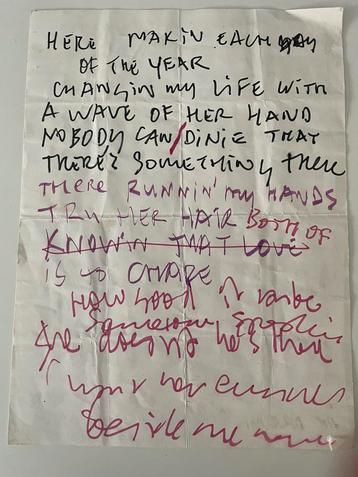 HERE MAKIN EACH DAY
OF THE YEAR
CHANGIN MY LIFE WITH
A WAVE OF HER HAND
NOBODY CAN DINIE THAT
THERE'S SOMETHING there
THERE RUNNIN' MY HANDS
TRU HER HAIR BOTH OF
KNOWIN THAT LOVE
IS TO CHARE
HOW GOOD IT can be
Someone speakin
she doesn't he's there
I want her
beside me